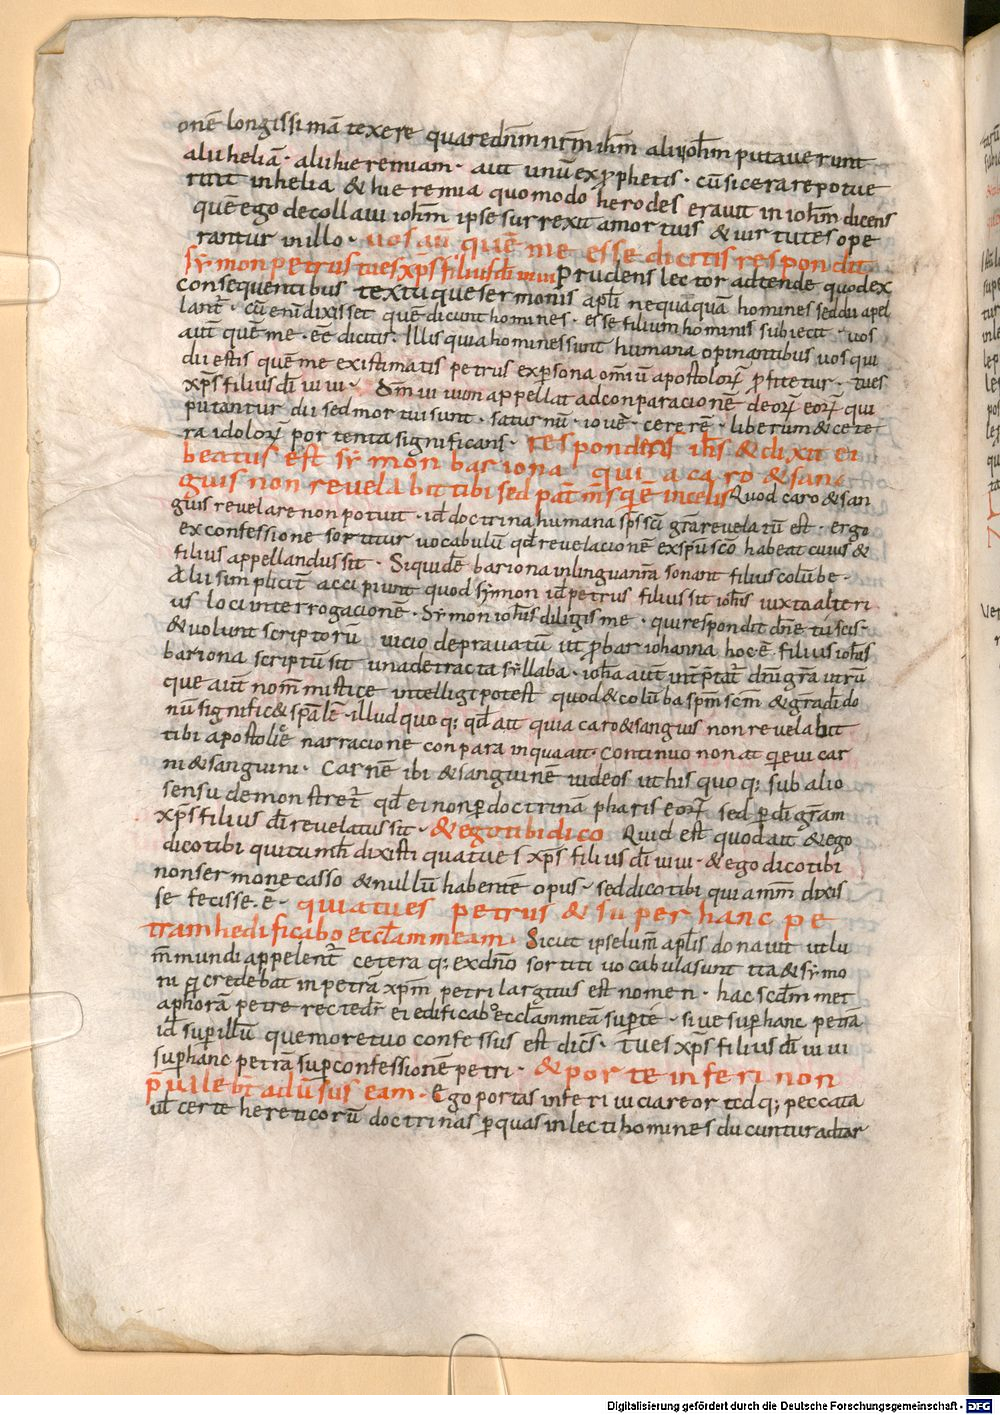 onē longissimā texere quare dn̄m nr̄m ih̄m alii ioh̄m putauerunt
alii heliā · alii hieremiam · aut unū ex ꝓphetis · cū sic errare potue
runt in helia & hieremia quomodo herodes erauit in ioh̄m dicens
quē ego decollaui ioh̄m ipse surrexit a mortuis & uirtutes ope
rantur in illo · uos aū quē me esse dicitis respondit
symon petrus tu es xp̄s filius dī uiui Prudens lector adtende quod ex
consequentibus textuque sermonis apl̄i nequaquā homines sed dii apel
lant̄ · cū eni dixisset quē dicunt homines · esse filium hominis subiecit · uos
aut̄ quē me · ēē dicitis · Illis quia homines sunt humana opinantibus uos qui
dii estis quē me existimatis petrus ex ꝑsona omiū apostoloꝝ ꝓfitetur · tu es
xp̄s filius dī uiui · dm̄ uiuum appellat ad conparacionē deoꝝ eoꝝ qui
putantur dii sed mortui sunt · saturnū · iouē · cererē · liberum & cete
ra idoloꝝ portenta significans · respondens ih̄s & dixit ei
beatus est symon bariona qui a caro & san
guis non reuelabit tibi sed pat̄ m̄s q̄ ē in celis Quod caro & san
guis reuelare non potuit · id̄ doctrina humana sp̄s sc̄i gr̄a reuelatū est · ergo
ex confessione sortitur uocabulū qd̄ reuelacionē ex sp̄u sc̄o habeat cuius &
filius appellandus sit · Siquidē bariona in lingua nr̄a sonant filius colūbe ·
Alii simplicit̄ accipiunt quod symon id̄ petrus filius sit ioh̄is iuxta alteri
us loci interrogacionē · Symon ioh̄is diligis me · qui respondit dn̄e tu scis ·
& uolunt scriptorū uicio deprauatū ut ꝓ bar iohanna hoc ē · filius ioh̄is
bariona scriptū sit una detracta syllaba · ioh̄a aut̄ int̄p̄tat̄ dn̄i gr̄a utrū
que aut̄ nom̄ mistice intelligi potest quod & colūba sp̄m sc̄m & gr̄a dī do
nū signific& sp̄alē · illud quoq; qd̄ ait quia caro & sanguis non reuelabit
tibi apostolice narracione conpara in qua ait · Continuo non atq̄eui car
ni & sanguini · Carnē ibi & sanguinē iudeos ut his quoq; sub alio
sensu demonstret̄ qd̄ ei non ꝑ doctrina phariseoꝝ sed ꝑ dī gr̄am
xp̄s filius dī reuelatus sit · & ego tibi dico Quid est quod ait & ego
dico tibi qui tu mih̄ dixisti quia tu es xp̄s filius dī uiui · & ego dico tibi
non sermone casso & nullū habentē opus · sed dico tibi qui a mm̄ dixis
se fecisse · ē · quia tu es petrus & super hanc pe
tram hedificabo eccl̄am meam · Sicut ipse lum̄ apl̄is donauit ut lu
m̄ mundi appelent̄ cetera q; ex dn̄o sortiti uocabula sunt ita & symo
ni q̄ credebat in petrā xp̄m petri largitus est nomen · hac scd̄m met
aphorā petre recte dr̄ ei edificabo eccl̄am meā suꝑ te · siue suꝑ hanc petrā
id̄ suꝑ illū quem ore tuo confessus est dic̄s · tu es xp̄s filius dī uiui
suꝑ hanc petrā suꝑ confessionē petri · & porte inferi non
p̄uale bt̄ adūsus eam · Ego portas inferi uiciare or tcd q; peccata
ul̄ certe hereticorū doctrinas ꝑ quas inlecti homines ducuntur ad tar
Digitalisierung gefördert durch die Deutsche Forschungsgemeinschaft - DFG